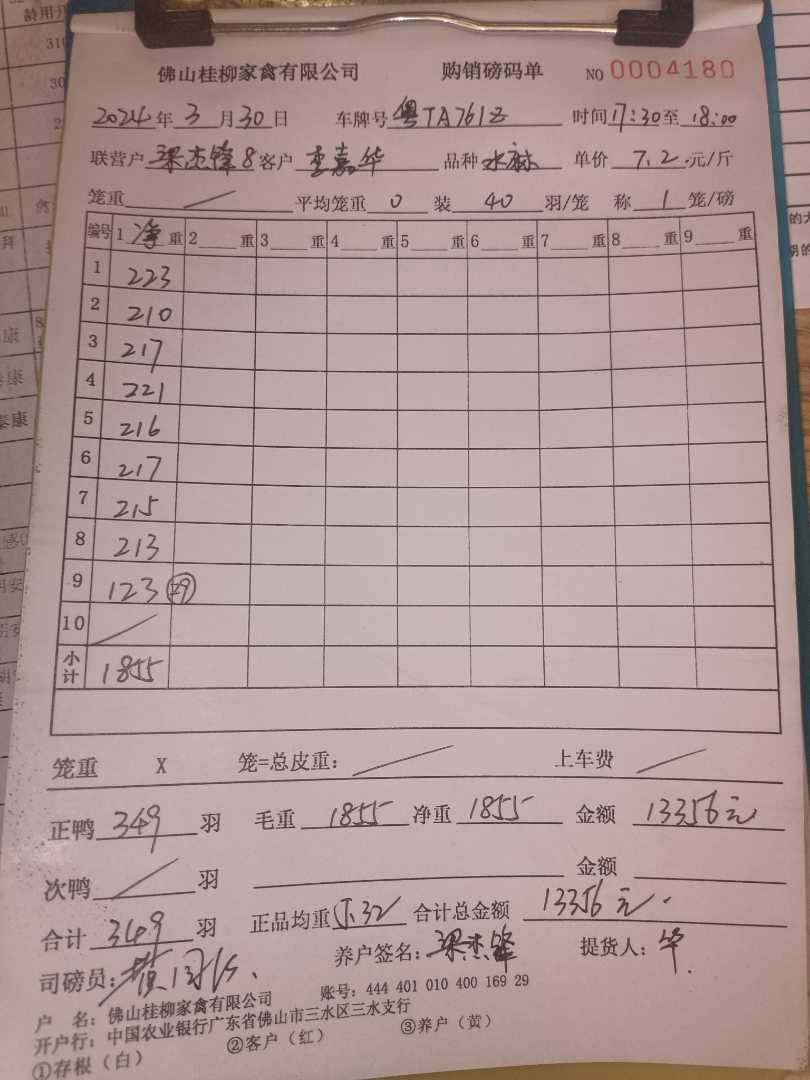 佛山桂柳家禽有限公司 购销磅码单 NO 0004180
2024年3月30日 车牌号 粤TA761Z 时间17:30至18:00
联营户 梁杰锋8 客户 李嘉华 品种 水麻 单价 7.2 元/斤
笼重 / 平均笼重 0 装 40 羽/笼 称 1 笼/磅
编号 1 净 重 2 重 3 重 4 重 5 重 6 重 7 重 8 重 9 重
1 223
2 210
3 217
4 221
5 216
6 217
7 215
8 213
9 123 (29)
10 /
小计 1855
笼重 X 笼=总皮重: / 上车费 /
正鸭 349 羽 毛重 1855 净重 1855 金额 13356元
次鸭 / 羽 金额
合计 349 羽 正品均重 5.32 合计总金额 13356元.
司磅员: 养户签名: 梁杰锋 提货人: 华.
户 名: 佛山桂柳家禽有限公司 账号: 444 401 010 400 169 29
开户行: 中国农业银行广东省佛山市三水区三水支行
①存根(白) ②客户(红) ③养户(黄)